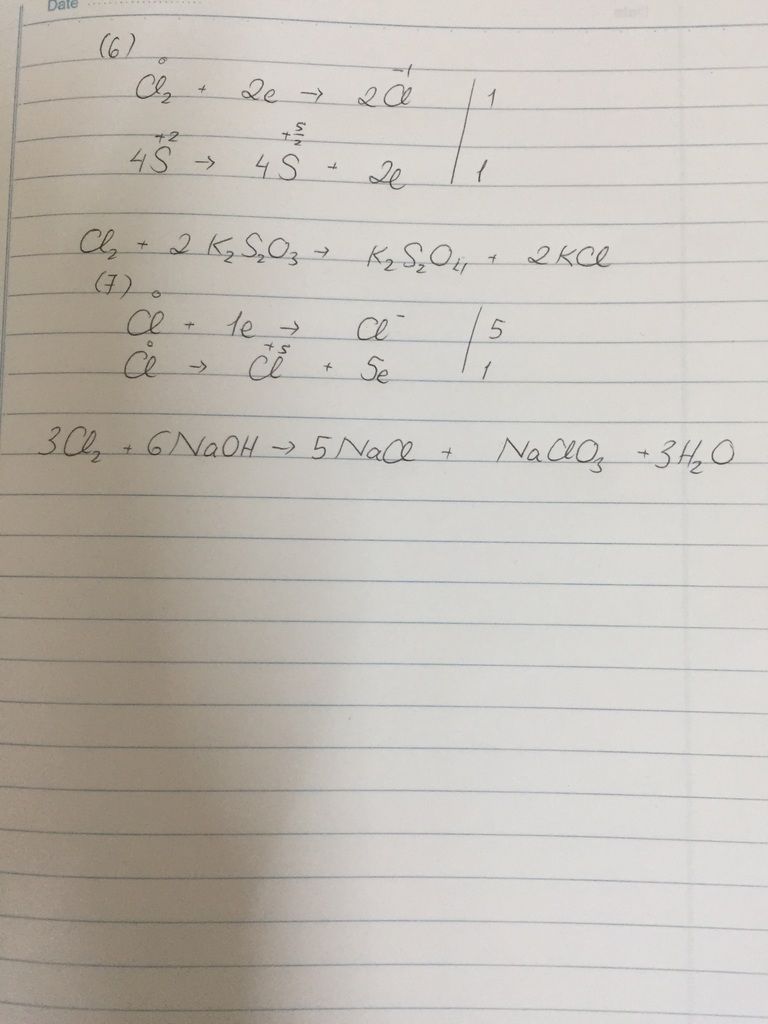 Date
(6)
0 -1
Cl₂ + 2e → 2Cl | 1
+2 +5/2
4S → 4S + 2e | 1
Cl₂ + 2 K₂S₂O₃ → K₂S₂O₄ + 2KCl
(7)
0
Cl + 1e → Cl⁻ | 5
0 +5
Cl → Cl + 5e | 1
3Cl₂ + 6NaOH → 5NaCl + NaClO₃ + 3H₂O